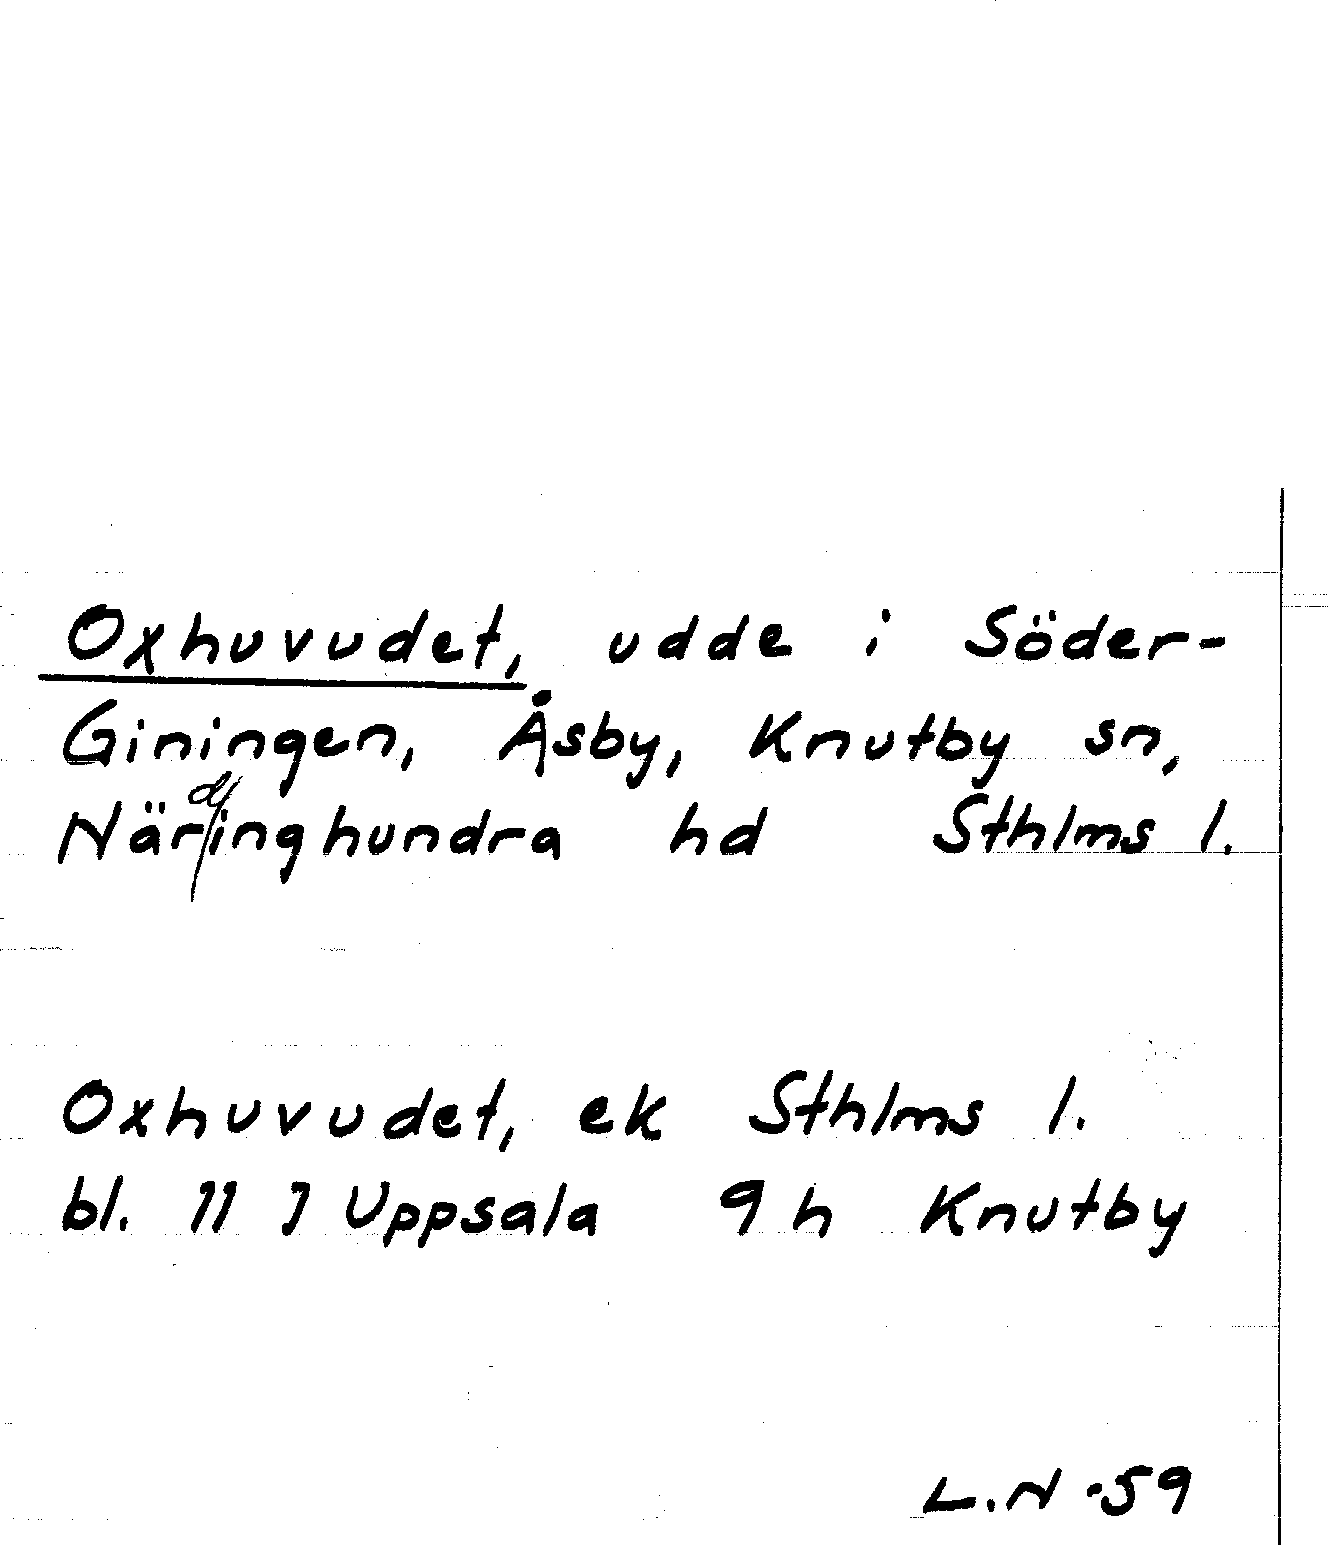 Oxhuvudet, udde i Söder-
Giningen, Åsby, Knutby sn,
Närdinghundra hd Sthlms l.
Oxhuvudet, ek Sthlms l.
bl. 11 J Uppsala 9h Knutby
L.N -59